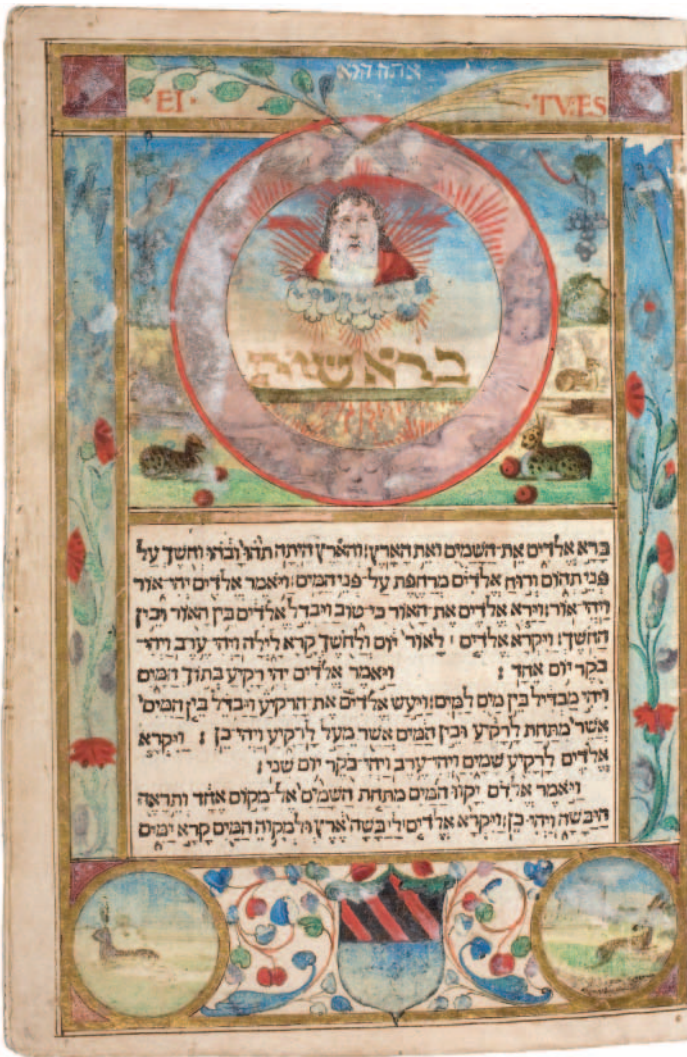 אתה הוא
·EI· ·TV·ES
בראשית
ברא אלדים את־השמים ואת הארץ: והארץ היתה תהו ובהו וחשך על
פני תהום ורוח אלדים מרחפת על־פני המים: ויאמר אלדים יהי־אור
ויהי־אור: וירא אלדים את־האור כי־טוב ויבדל אלדים בין האור ובין
החשך: ויקרא אלדים ׀ לאור יום ולחשך קרא לילה ויהי ערב ויהי־
בקר יום אחד: ויאמר אלדים יהי רקיע בתוך המים
ויהי מבדיל בין מים למים: ויעש אלדים את הרקיע ויבדל בין המים
אשר מתחת לרקיע ובין המים אשר מעל לרקיע ויהי כן: ויקרא
אלדים לרקיע שמים ויהי־ערב ויהי־בקר יום שני:
ויאמר אלדים יקוו המים מתחת השמים אל־מקום אחד ותראה
היבשה ויהי־כן: ויקרא אלדים ליבשה ארץ ולמקוה המים קרא ימים